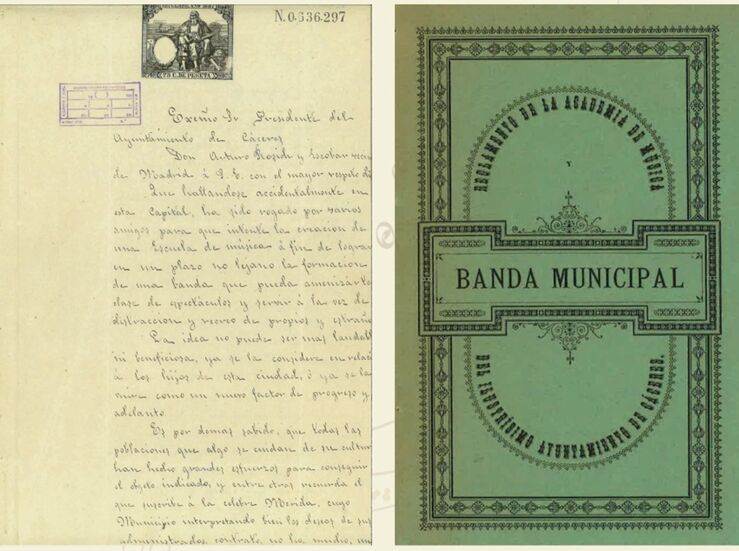 N.0.636.297
75 C. DE PESETA
Excmo Sr Presidente del
Ayuntamiento de Cáceres
Don Arturo Rosich y Escobar
de Madrid á S. E. con el mayor respeto
Que hallandose accidentalmente en
esta Capital, ha sido rogado por varios
amigos para que intente la creacion de
una Escuela de música á fin de lograr
en un plazo no lejano la formacion
de una banda que pueda amenizar
clase de espectáculos y servir á la vez de
distraccion y recreo de propios y
La idea no puede ser mas
ni beneficiosa, ya se la considere en
á los hijos de esta ciudad, ó ya se la
mire como un nuevo factor de progreso y
adelanto.
Es por demas sabido, que todas las
poblaciones que algo se cuidan de su
han hecho grandes esfuerzos para conseguir
el objeto indicado, y entre otras recuerda el
que suscribe á la celebre Merida, cuyo
Municipio interpretando bien los deseos de sus
administrados, contrató no ha mucho,
REGLAMENTO DE LA ACADEMIA DE MÚSICA
Y
BANDA MUNICIPAL
DEL ILUSTRÍSIMO AYUNTAMIENTO DE CÁCERES.